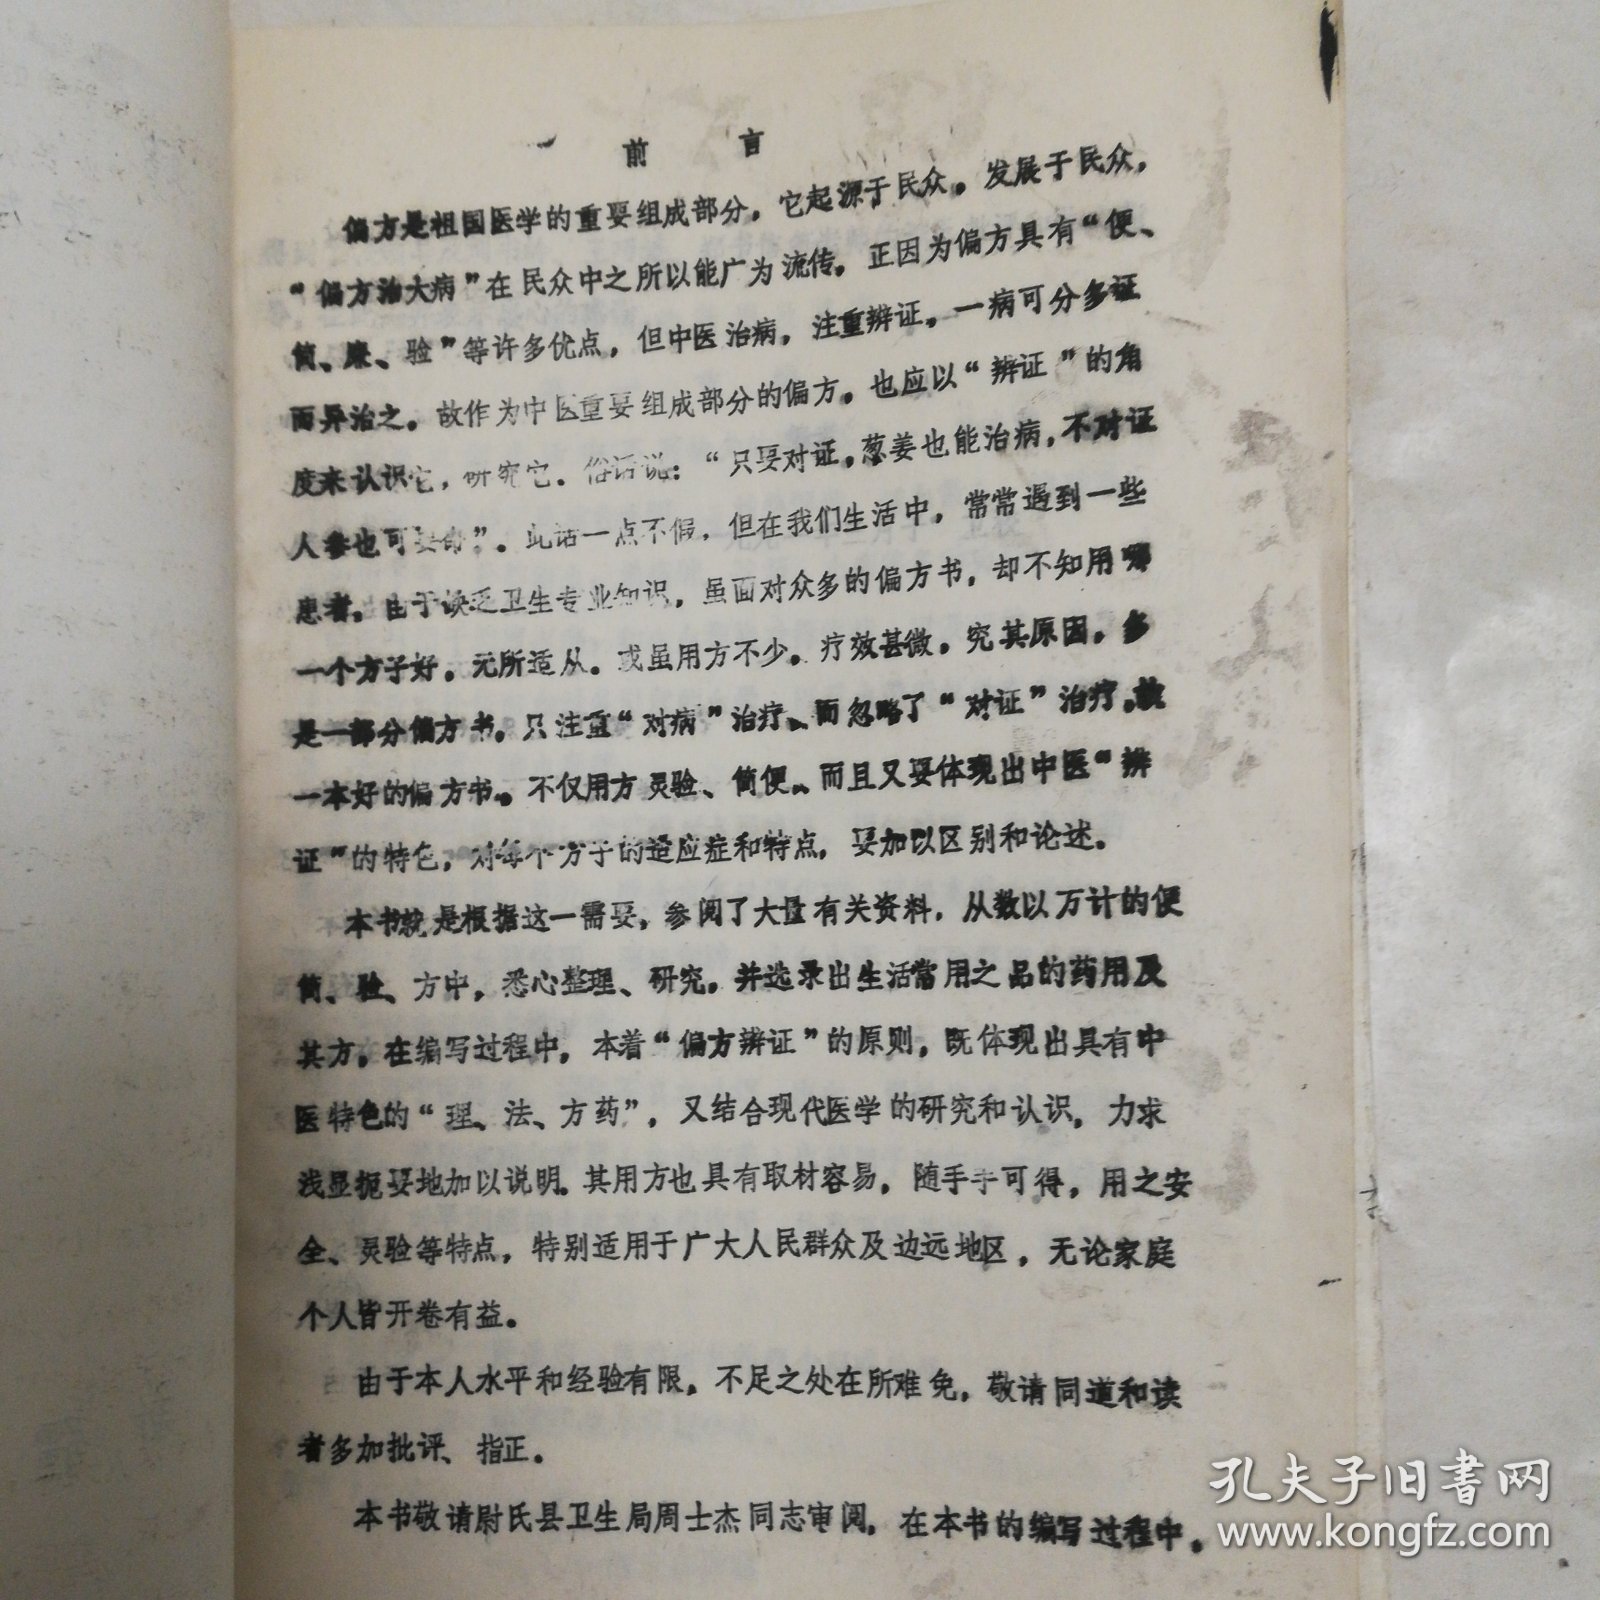 前 言
偏方是祖国医学的重要组成部分。它起源于民众。发展于民众，
“偏方治大病”在民众中之所以能广为流传。正因为偏方具有“便、
简、廉、验”等许多优点，但中医治病，注重辨证。一病可分多证
而异治之。故作为中医重要组成部分的偏方。也应以“辨证”的角
度来认识它，研究它。俗话说：“只要对证，葱姜也能治病，不对证
人参也可要命”。此话一点不假，但在我们生活中，常常遇到一些
患者，由于缺乏卫生专业知识，虽面对众多的偏方书，却不知用哪
一个方子好。无所适从。或虽用方不少。疗效甚微。究其原因。多
是一部分偏方书。只注重“对病”治疗、而忽略了“对证”治疗。故
一本好的偏方书。不仅用方灵验、简便、而且又要体现出中医“辨
证”的特色，对每个方子的适应症和特点，要加以区别和论述。
本书就是根据这一需要，参阅了大量有关资料，从数以万计的便
简、验、方中，悉心整理、研究。并选录出生活常用之品的药用及
其方。在编写过程中，本着“偏方辨证”的原则，既体现出具有中
医特色的“理、法、方药”，又结合现代医学的研究和认识，力求
浅显扼要地加以说明。其用方也具有取材容易，随手手可得，用之安
全、灵验等特点，特别适用于广大人民群众及边远地区，无论家庭
个人皆开卷有益。
由于本人水平和经验有限。不足之处在所难免，敬请同道和读
者多加批评、指正。
本书敬请尉氏县卫生局周士杰同志审阅，在本书的编写过程中。
孔夫子旧书网
www.kongfz.com